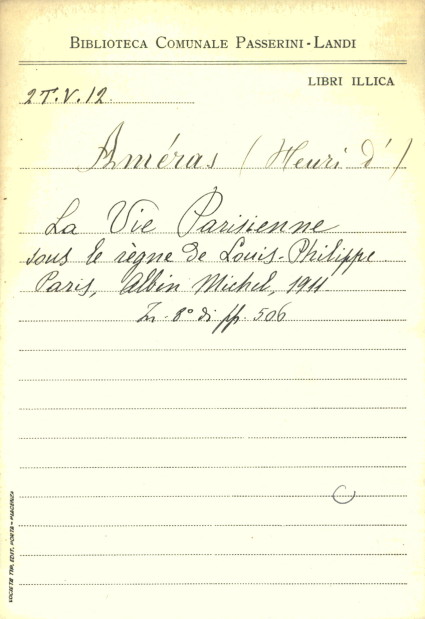 BIBLIOTECA COMUNALE PASSERINI-LANDI
LIBRI ILLICA
2T.V.12.
Améras (Henri d')
La Vie Parisienne
sous le règne de Louis-Philippe.
Paris, Albin Michel, 1911.
In 8° di pp. 506
SOCIETÀ TIP. EDIT. PORTA - PIACENZA